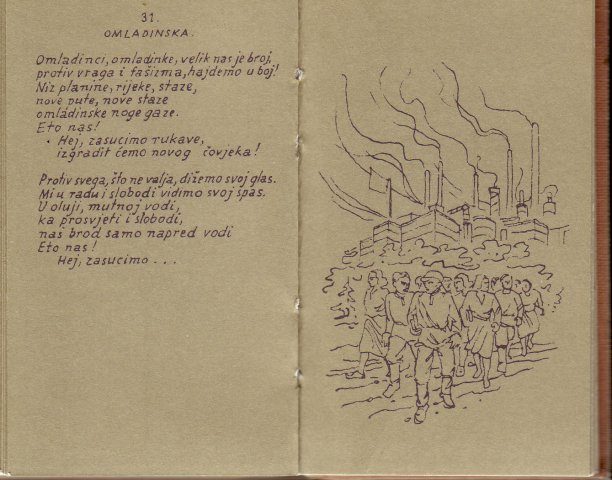 31.
OMLADINSKA.
Omladinci, omladinke, velik nas je broj,
protiv vraga i fašizma, hajdemo u boj!
Niz planine, rijeke, staze,
nove pute, nove staze
omladinske noge gaze.
Eto nas!
Hej, zasucimo rukave,
izgradit ćemo novog čovjeka!
Protiv svega, što ne valja, dižemo svoj glas.
Mi u radu i slobodi vidimo svoj spas.
U oluji, mutnoj vodi,
ka prosvjeti i slobodi,
naš brod samo napred vodi
Eto nas!
Hej, zasucimo . . .